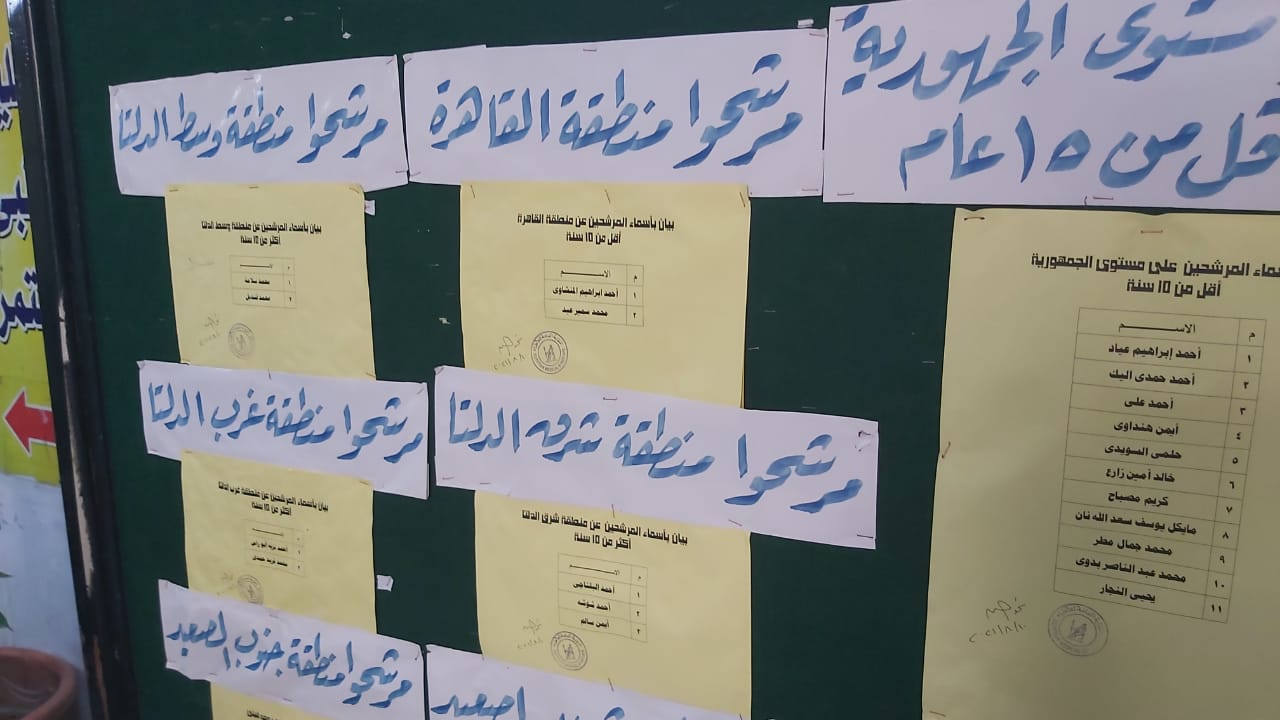 مستوى الجمهورية
أقل من ١٥ عام
أسماء المرشحين على مستوى الجمهورية
أقل من 15 سنة
م الاســـم
١ أحمد إبراهيم عياد
٢ أحمد حمدى اليك
٣ أحمد على
٤ أيمن هنداوى
٥ حلمى السويدى
٦ خالد أمين زارع
٧ كريم مصباح
٨ مايكل يوسف سعد الله نان
٩ محمد جمال مطر
١٠ محمد عبد الناصر بدوى
١١ يحيى النجار
مرشحوا منطقة القاهرة
بيان بأسماء المرشحين عن منطقة القاهرة
أقل من 15 سنة
م الاســـم
١ أحمد ابراهيم المنشاوى
٢ محمد سمير عيد
مرشحوا منطقة وسط الدلتا
بيان بأسماء المرشحين عن منطقة وسط الدلتا
أكثر من 15 سنة
م الاســـم
١ محمد سلامه
٢ محمد قنديل
مرشحوا منطقة شرق الدلتا
بيان بأسماء المرشحين عن منطقة شرق الدلتا
أكثر من 15 سنة
م الاســـم
١ أحمد البلتاجى
٢ أحمد شوشه
٣ أيمن سالم
مرشحوا منطقة غرب الدلتا
بيان بأسماء المرشحين عن منطقة غرب الدلتا
أكثر من 15 سنة
مرشحوا منطقة جنوب الصعيد